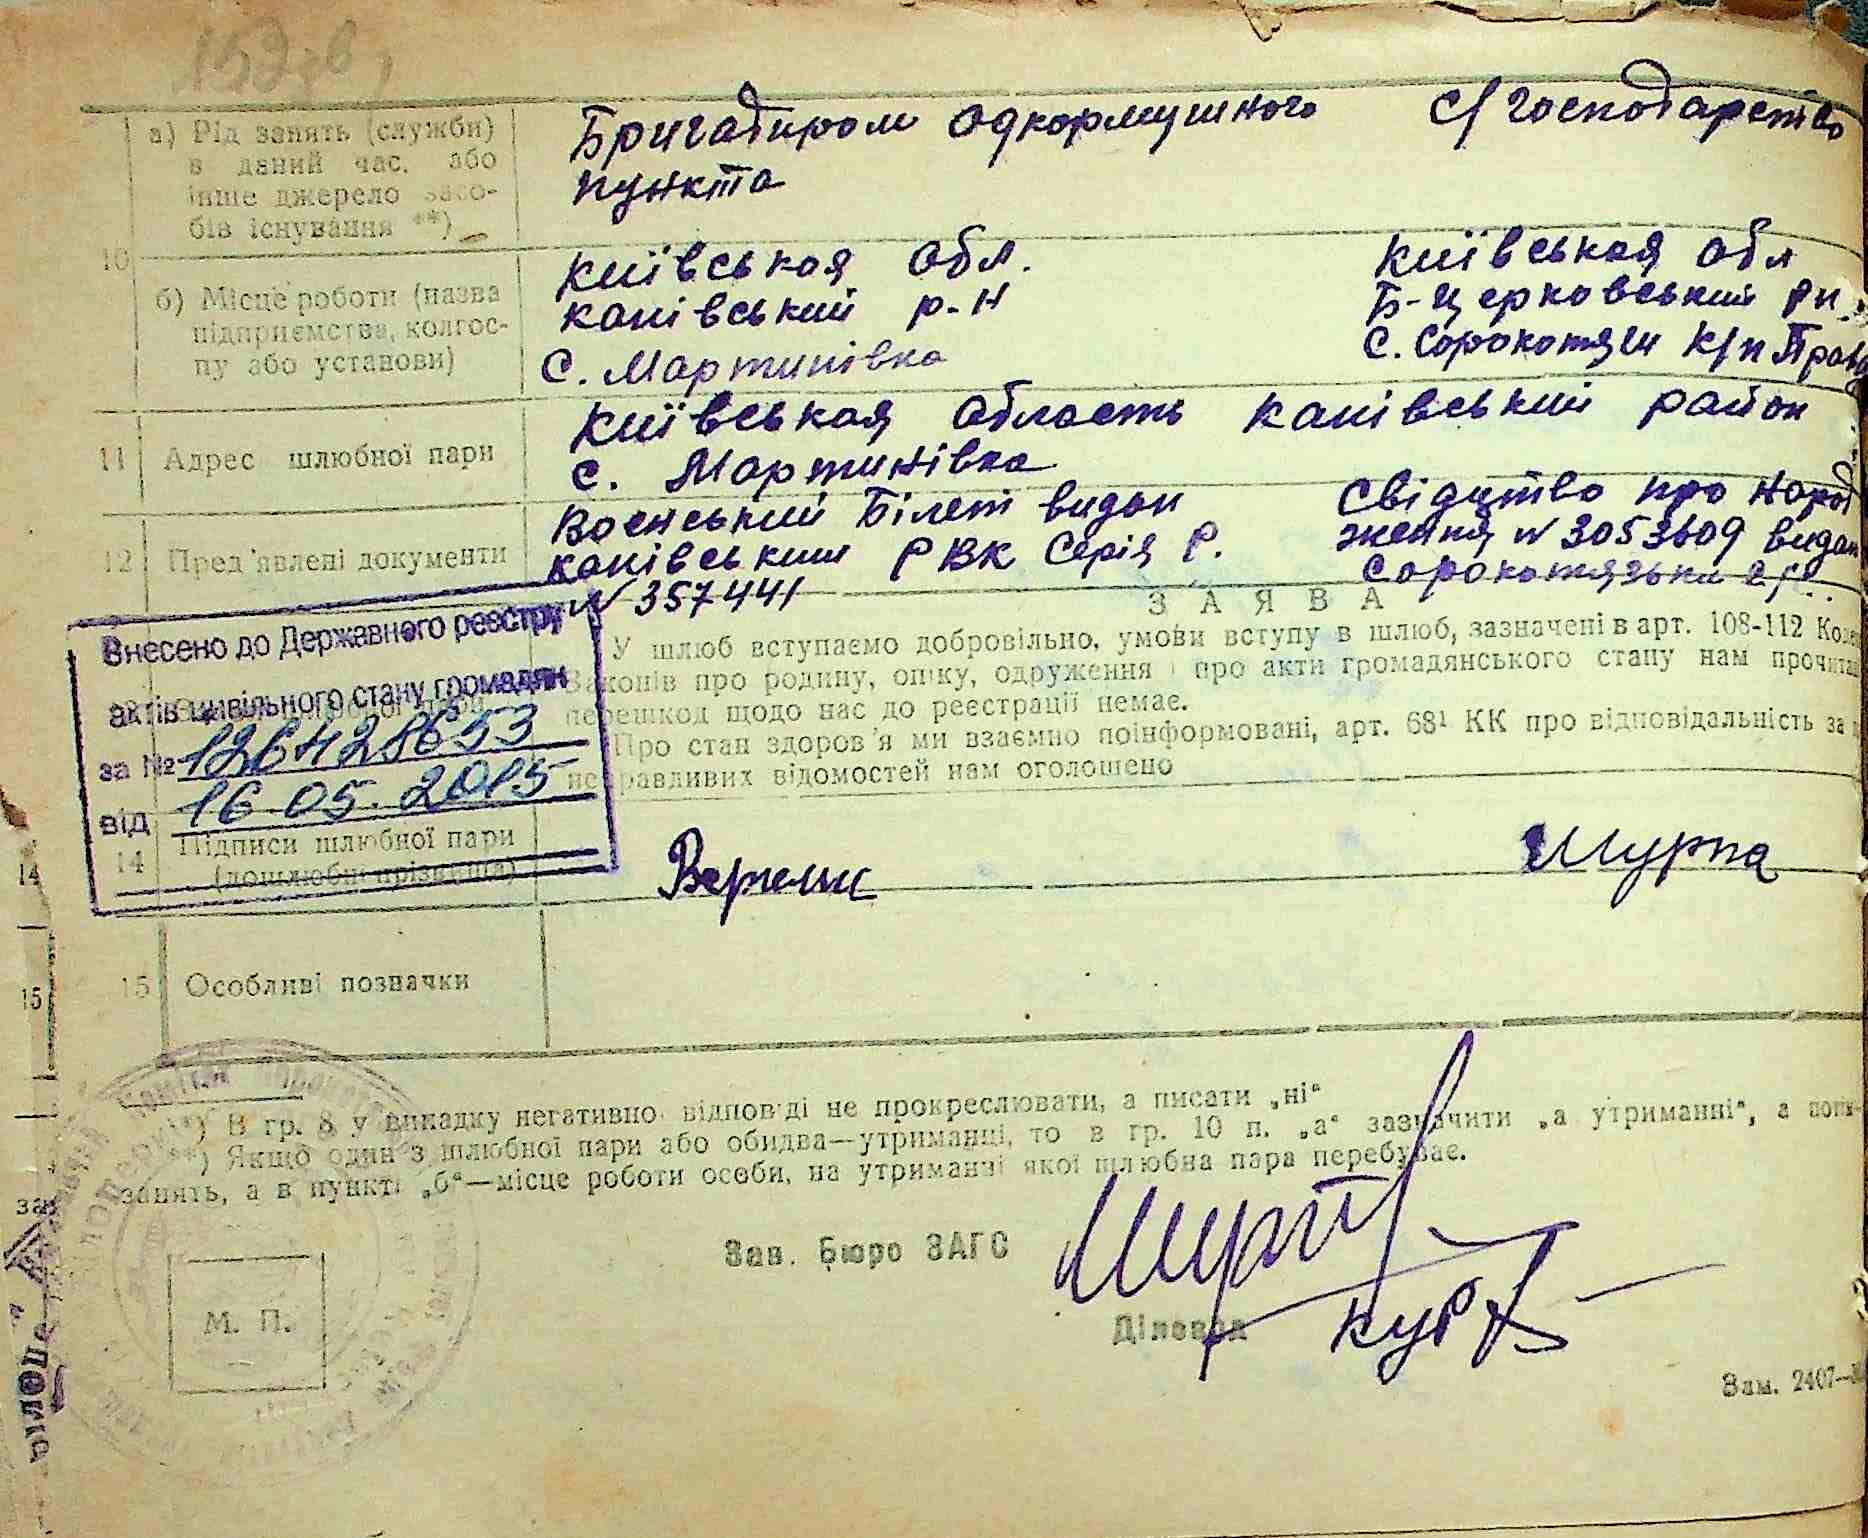 а) Рід занять (служби)
в даний час, або
інше джерело засо-
бів існування **)
Бригадиром одкормушного
пункта
С/Господарство
10
б) Місце роботи (назва
підприємства, колгос-
пу або установи)
київськая обл.
канівський р-н
с. Мартинівка
київськая обл
Б-Церковський рн.
с. Сорокотяги к/п Прав
11 Адрес шлюбної пари
київськая область канівський район
с. Мартинівка
12 Пред'явлені документи
Воєнський Білет видан
канівським РВК Серія Р.
№ 357441
Свідуцтво про народ
женя № 3053609 видан
Внесено до Державного реєстру
актів цивільного стану громадян
за № 126428653
від 16 05. 2015
ЗАЯВА
У шлюб вступаємо добровільно, умови вступу в шлюб, зазначені в арт. 108-112 Коде
Законів про родину, опіку, одруження і про акти громадянського стану нам прочита
перешкод щодо нас до реєстрації немає.
Про стан здоров'я ми взаємно поінформовані, арт. 68¹ КК про відповідальність за
неправдивих відомостей нам оголошено
14 Підписи шлюбної пари
(дошлюбні прізвища)
Шурпа
14
15 Особливі позначки
15
*) В гр. 8 у випадку негативної відповіді не прокреслювати, а писати „ні“
**) Якщо один з шлюбної пари або обидва—утриманці, то в гр. 10 п. „а“ зазначити „а утриманні“, а
занять, а в пункті „б“—місце роботи особи, на утриманні якої шлюбна пара перебуває.
Зав. Бюро ЗАГС
Діловод
М. П.
Зам. 2407—